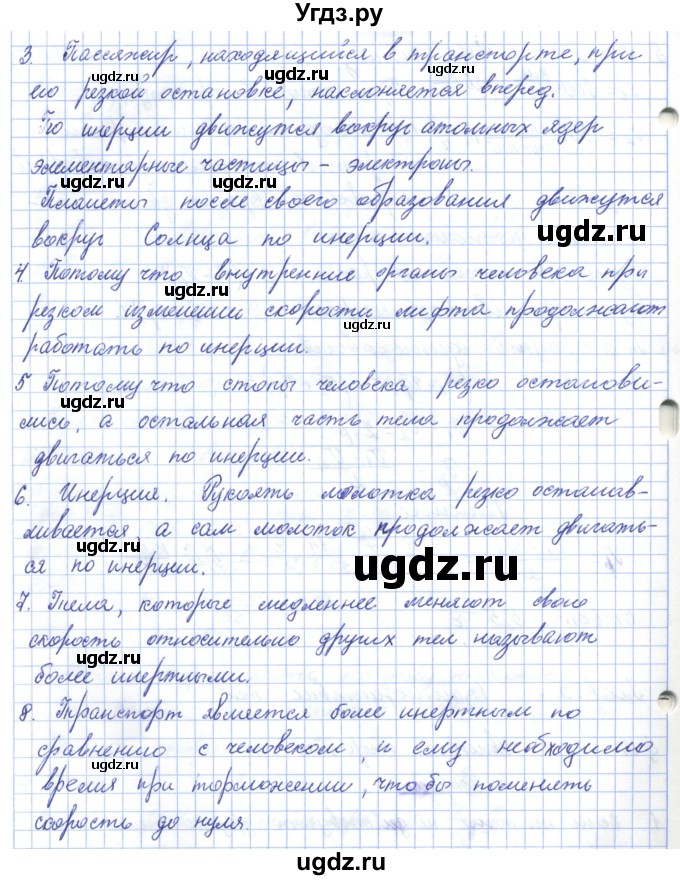 Угдз.ру
3. Пассажир, находящийся в транспорте, при
ugdz.ru ugdz.ru
его резкой остановке, наклоняется вперед.
По инерции движутся вокруг атомных ядер
элементарные частицы – электроны.
ugdz.ru ugdz.ru
Планеты после своего образования движутся
ugdz.ru
вокруг Солнца по инерции.
4. Потому что внутренние органы человека при
ugdz.ru
резком изменении скорости лифта продолжают
ugdz.ru
работать по инерции.
5 Потому что стопы человека резко останови-
ugdz.ru
лись, а остальная часть тела продолжает
ugdz.ru
двигаться по инерции.
6. Инерция. Рукоять молотка резко останав-
ugdz.ru
ливается а сам молоток продолжает двигать-
ugdz.ru
ся по инерции.
ugdz.ru
7. Тела, которые медленнее меняют свою
скорость относительно других тел называют
ugdz.ru
более инертными.
ugdz.ru
8. Транспорт является более инертным по
сравнению с человеком, и ему необходимо
ugdz.ru
время при торможении, что бы поменять
скорость до нуля.
ugdz.ru ugdz.ru